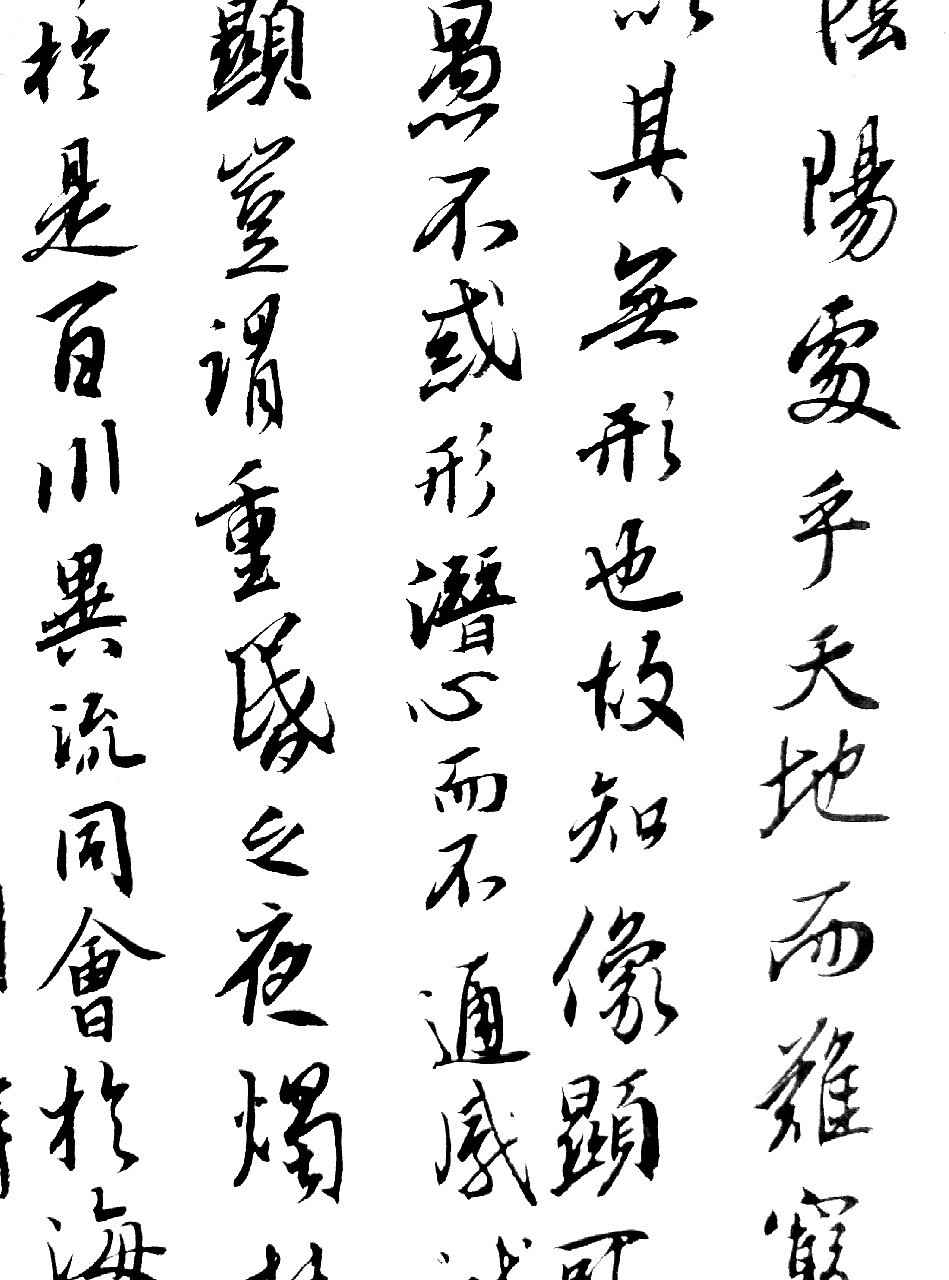 陰陽處乎天地而難窮
以其無形也故知像顯可
愚不惑形潛心而不邇感
顯豈謂重昏之夜燭
於是百川異流同會於海